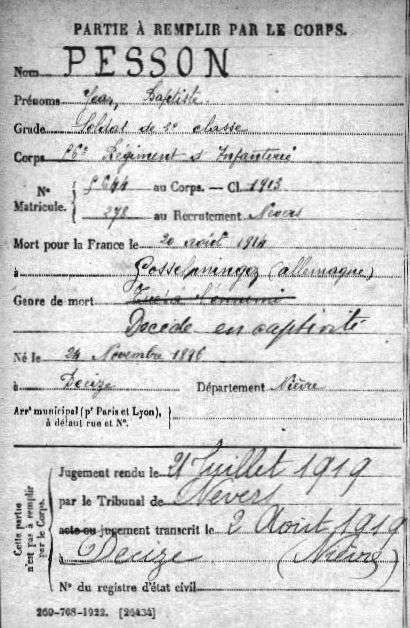 PARTIE À REMPLIR PAR LE CORPS.
Nom PESSON
Prénoms Jean, Baptiste
Grade Soldat de 2e classe
Corps Régiment d'Infanterie
Nº Matricule. au Corps. — Cl. 1913
278 au Recrutement Nevers
Mort pour la France le 20 août 1914
à Gosselmingez (allemagne)
Genre de mort
Décédé en captivité
Né le 24 Novembre
à Deuze Département Nièvre
Arrt municipal (pr Paris et Lyon), à défaut rue et Nº.
Cette partie n'est pas à remplir par le Corps.
Jugement rendu le 21 Juillet 1919
par le Tribunal de Nevers
acte ou jugement transcrit le 2 Août 1919
à Deuze (Nièvre)
Nº du registre d'état civil
260-708-1922. [26434]